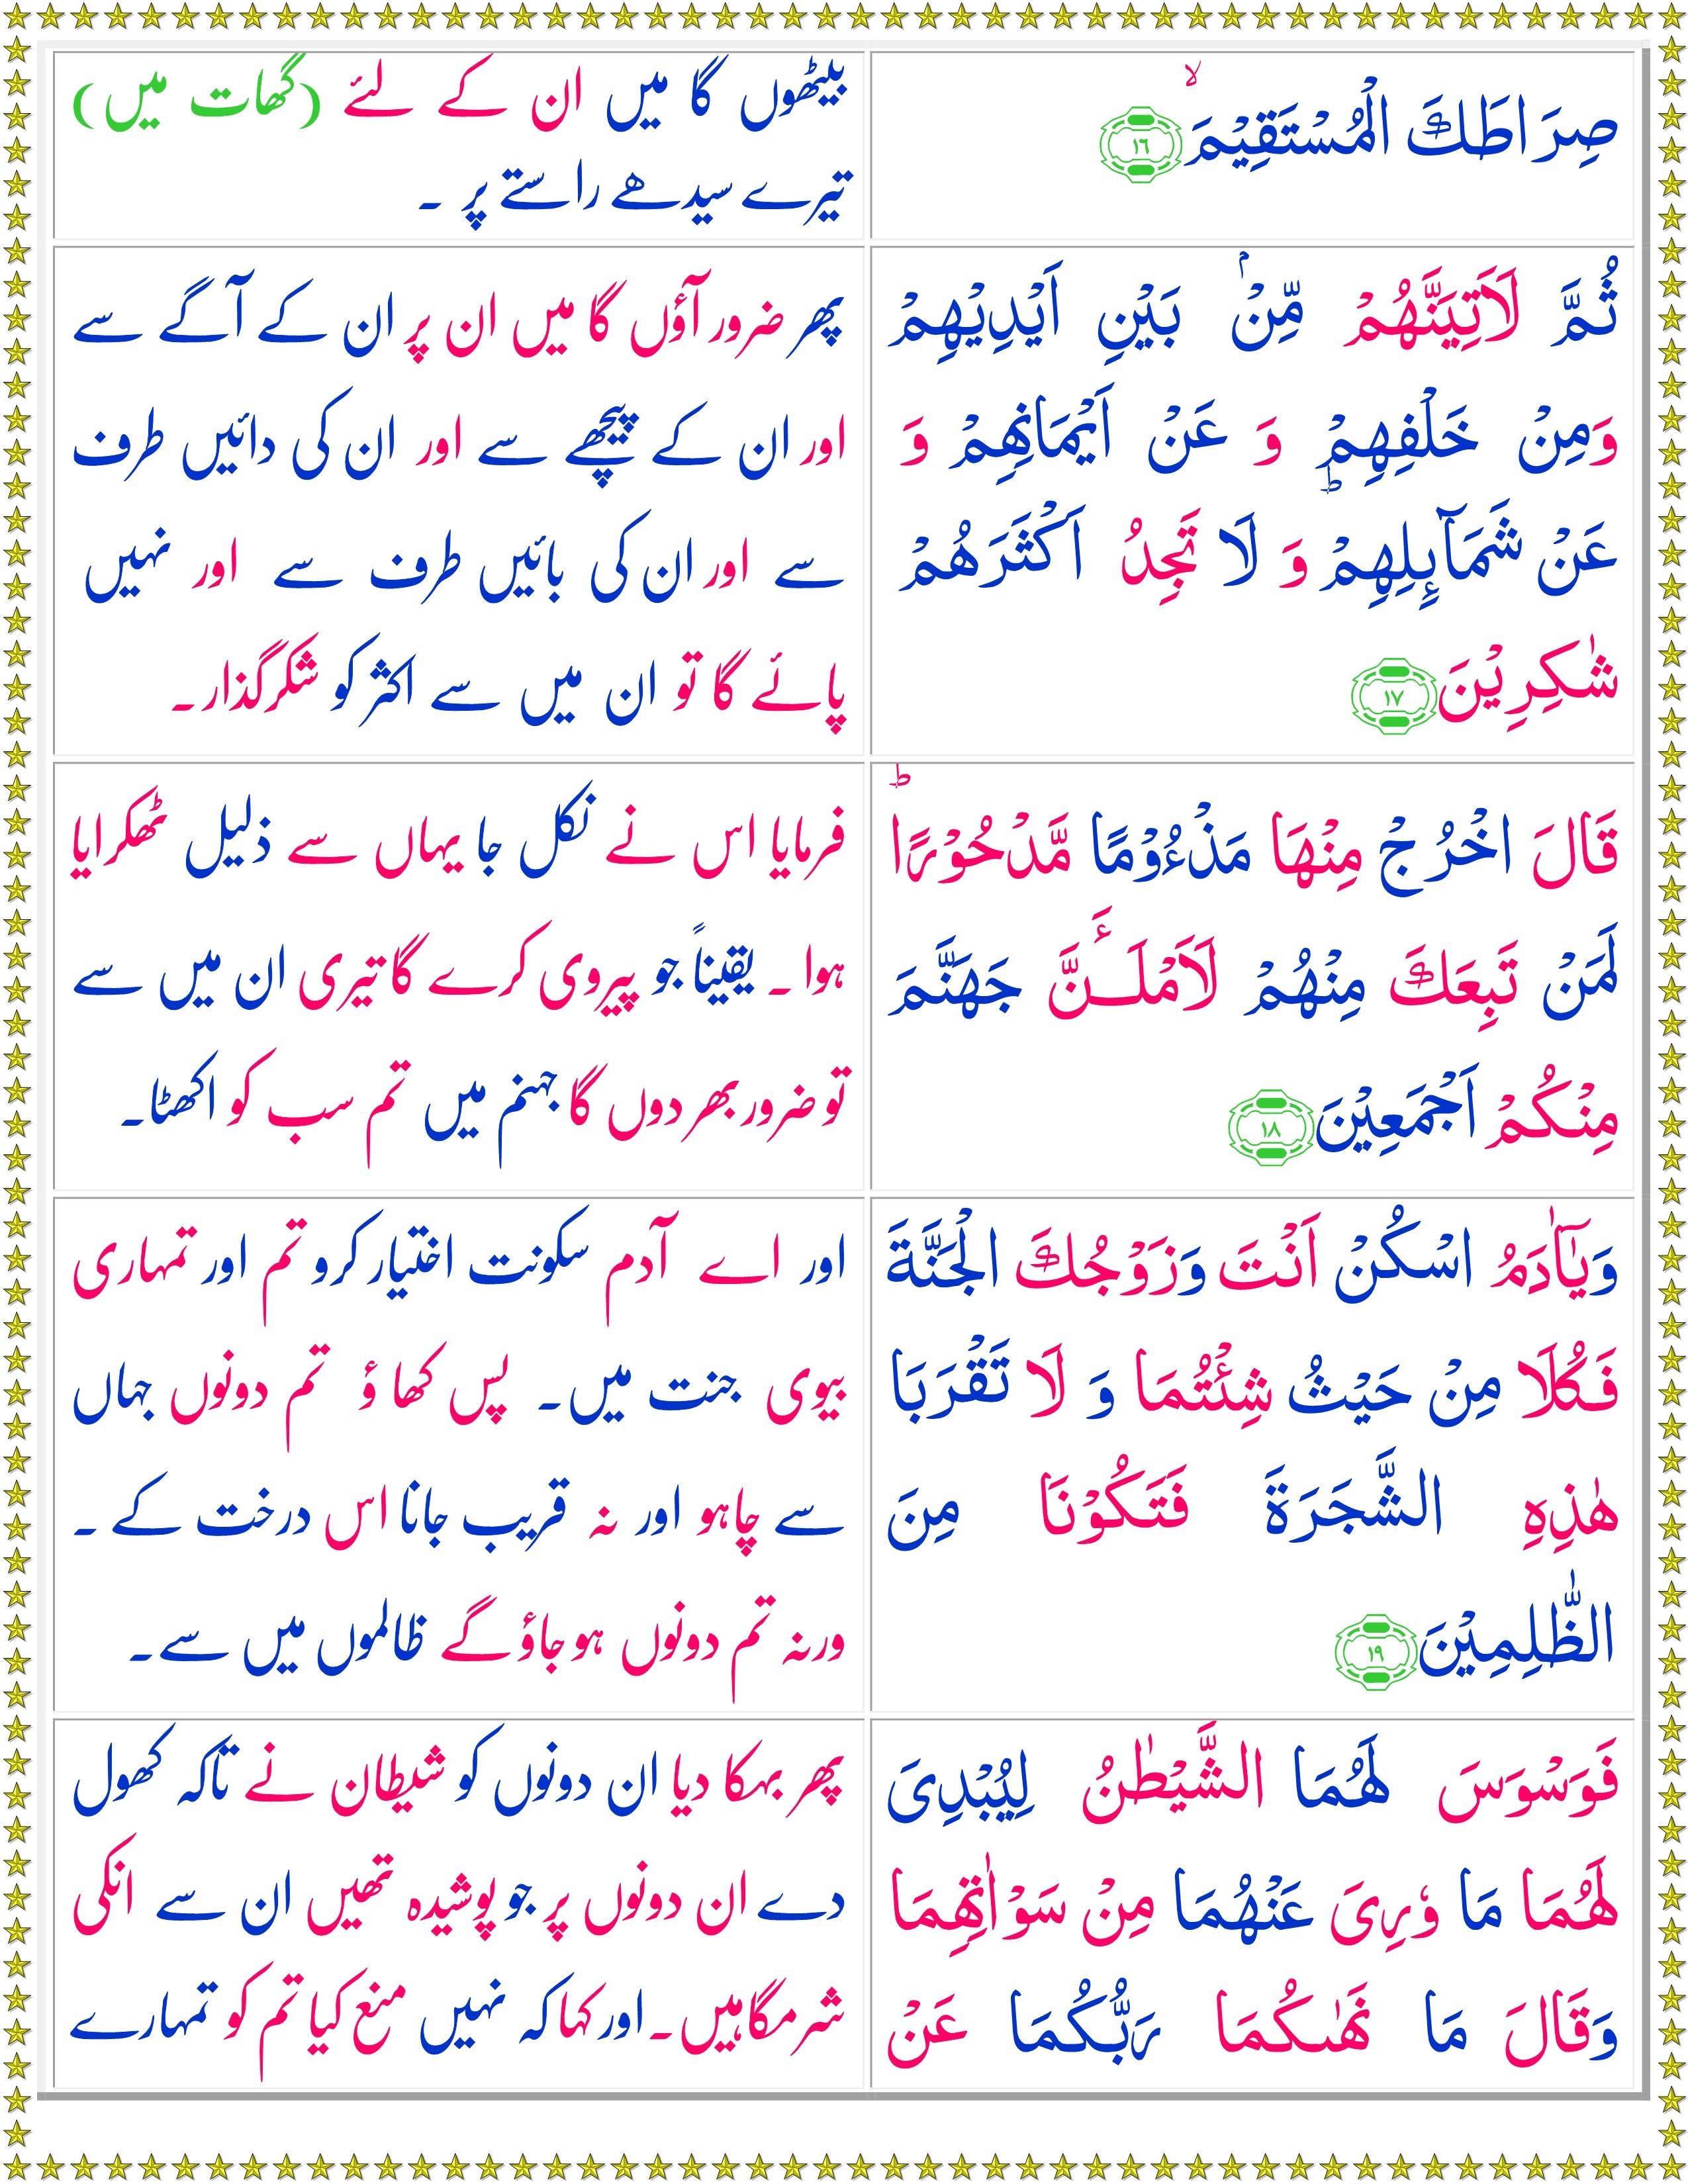 صِرَاطَكَ الْمُسْتَقِيْمَ ۙ ﴿١٦﴾
بیٹھوں گا میں ان کے لئے (گھات میں)
تیرے سیدھے راستے پر ۔
ثُمَّ لَاٰتِيَنَّهُمْ مِّنْۢ بَيْنِ اَيْدِيْهِمْ
وَمِنْ خَلْفِهِمْ وَ عَنْ اَيْمَانِهِمْ وَ
عَنْ شَمَآىِٕلِهِمْ ؕ وَ لَا تَجِدُ اَكْثَرَهُمْ
شٰكِرِيْنَ ﴿١٧﴾
پھر ضرور آؤں گا میں ان پر ان کے آگے سے
اور ان کے پیچھے سے اور ان کی دائیں طرف
سے اور ان کی بائیں طرف سے اور نہیں
پائے گا تو ان میں سے اکثر کو شکر گذار۔
قَالَ اخْرُجْ مِنْهَا مَذْءُوْمًا مَّدْحُوْرًا ؕ
لَمَنْ تَبِعَكَ مِنْهُمْ لَاَمْلَـــَٔنَّ جَهَنَّمَ
مِنْكُمْ اَجْمَعِيْنَ ﴿١٨﴾
فرمایا اس نے نکل جا یہاں سے ذلیل ٹھکرایا
ہوا ۔ یقیناً جو پیروی کرے گا تیری ان میں سے
تو ضرور بھر دوں گا جہنم میں تم سب کو اکھٹا۔
وَيٰۤاٰدَمُ اسْكُنْ اَنْتَ وَزَوْجُكَ الْجَنَّةَ
فَكُلَا مِنْ حَيْثُ شِئْتُمَا وَ لَا تَقْرَبَا
هٰذِهِ الشَّجَرَةَ فَتَكُوْنَا مِنَ
الظّٰلِمِيْنَ ﴿١٩﴾
اور اے آدم سکونت اختیار کرو تم اور تمہاری
بیوی جنت میں۔ پس کھا ؤ تم دونوں جہاں
سے چاہو اور نہ قریب جانا اس درخت کے ۔
ورنہ تم دونوں ہو جاؤ گے ظالموں میں سے۔
فَوَسْوَسَ لَهُمَا الشَّيْطٰنُ لِيُبْدِىَ
لَهُمَا مَا وٗرِىَ عَنْهُمَا مِنْ سَوْاٰتِهِمَا
وَقَالَ مَا نَهٰٮكُمَا رَبُّكُمَا عَنْ
پھر بہکا دیا ان دونوں کو شیطان نے تاکہ کھول
دے ان دونوں پر جو پوشیدہ تھیں ان سے انکی
شرمگاہیں۔ اور کہا کہ نہیں منع کیا تم کو تمہارے